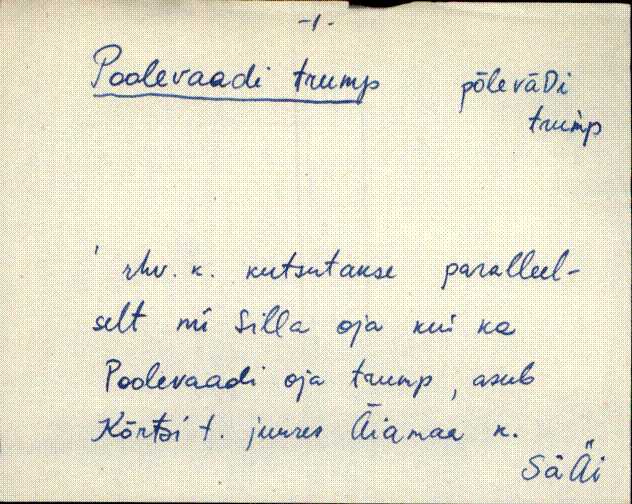 -1-
Poolevaadi trump pōlevāDi
trum̀p
' rhv. k. kutsutakse paralleel-
selt nii Silla oja kui ka
Poolevaadi oja trump, asub
Kõrtsi t. juures Äiamaa k.
Sä Äi